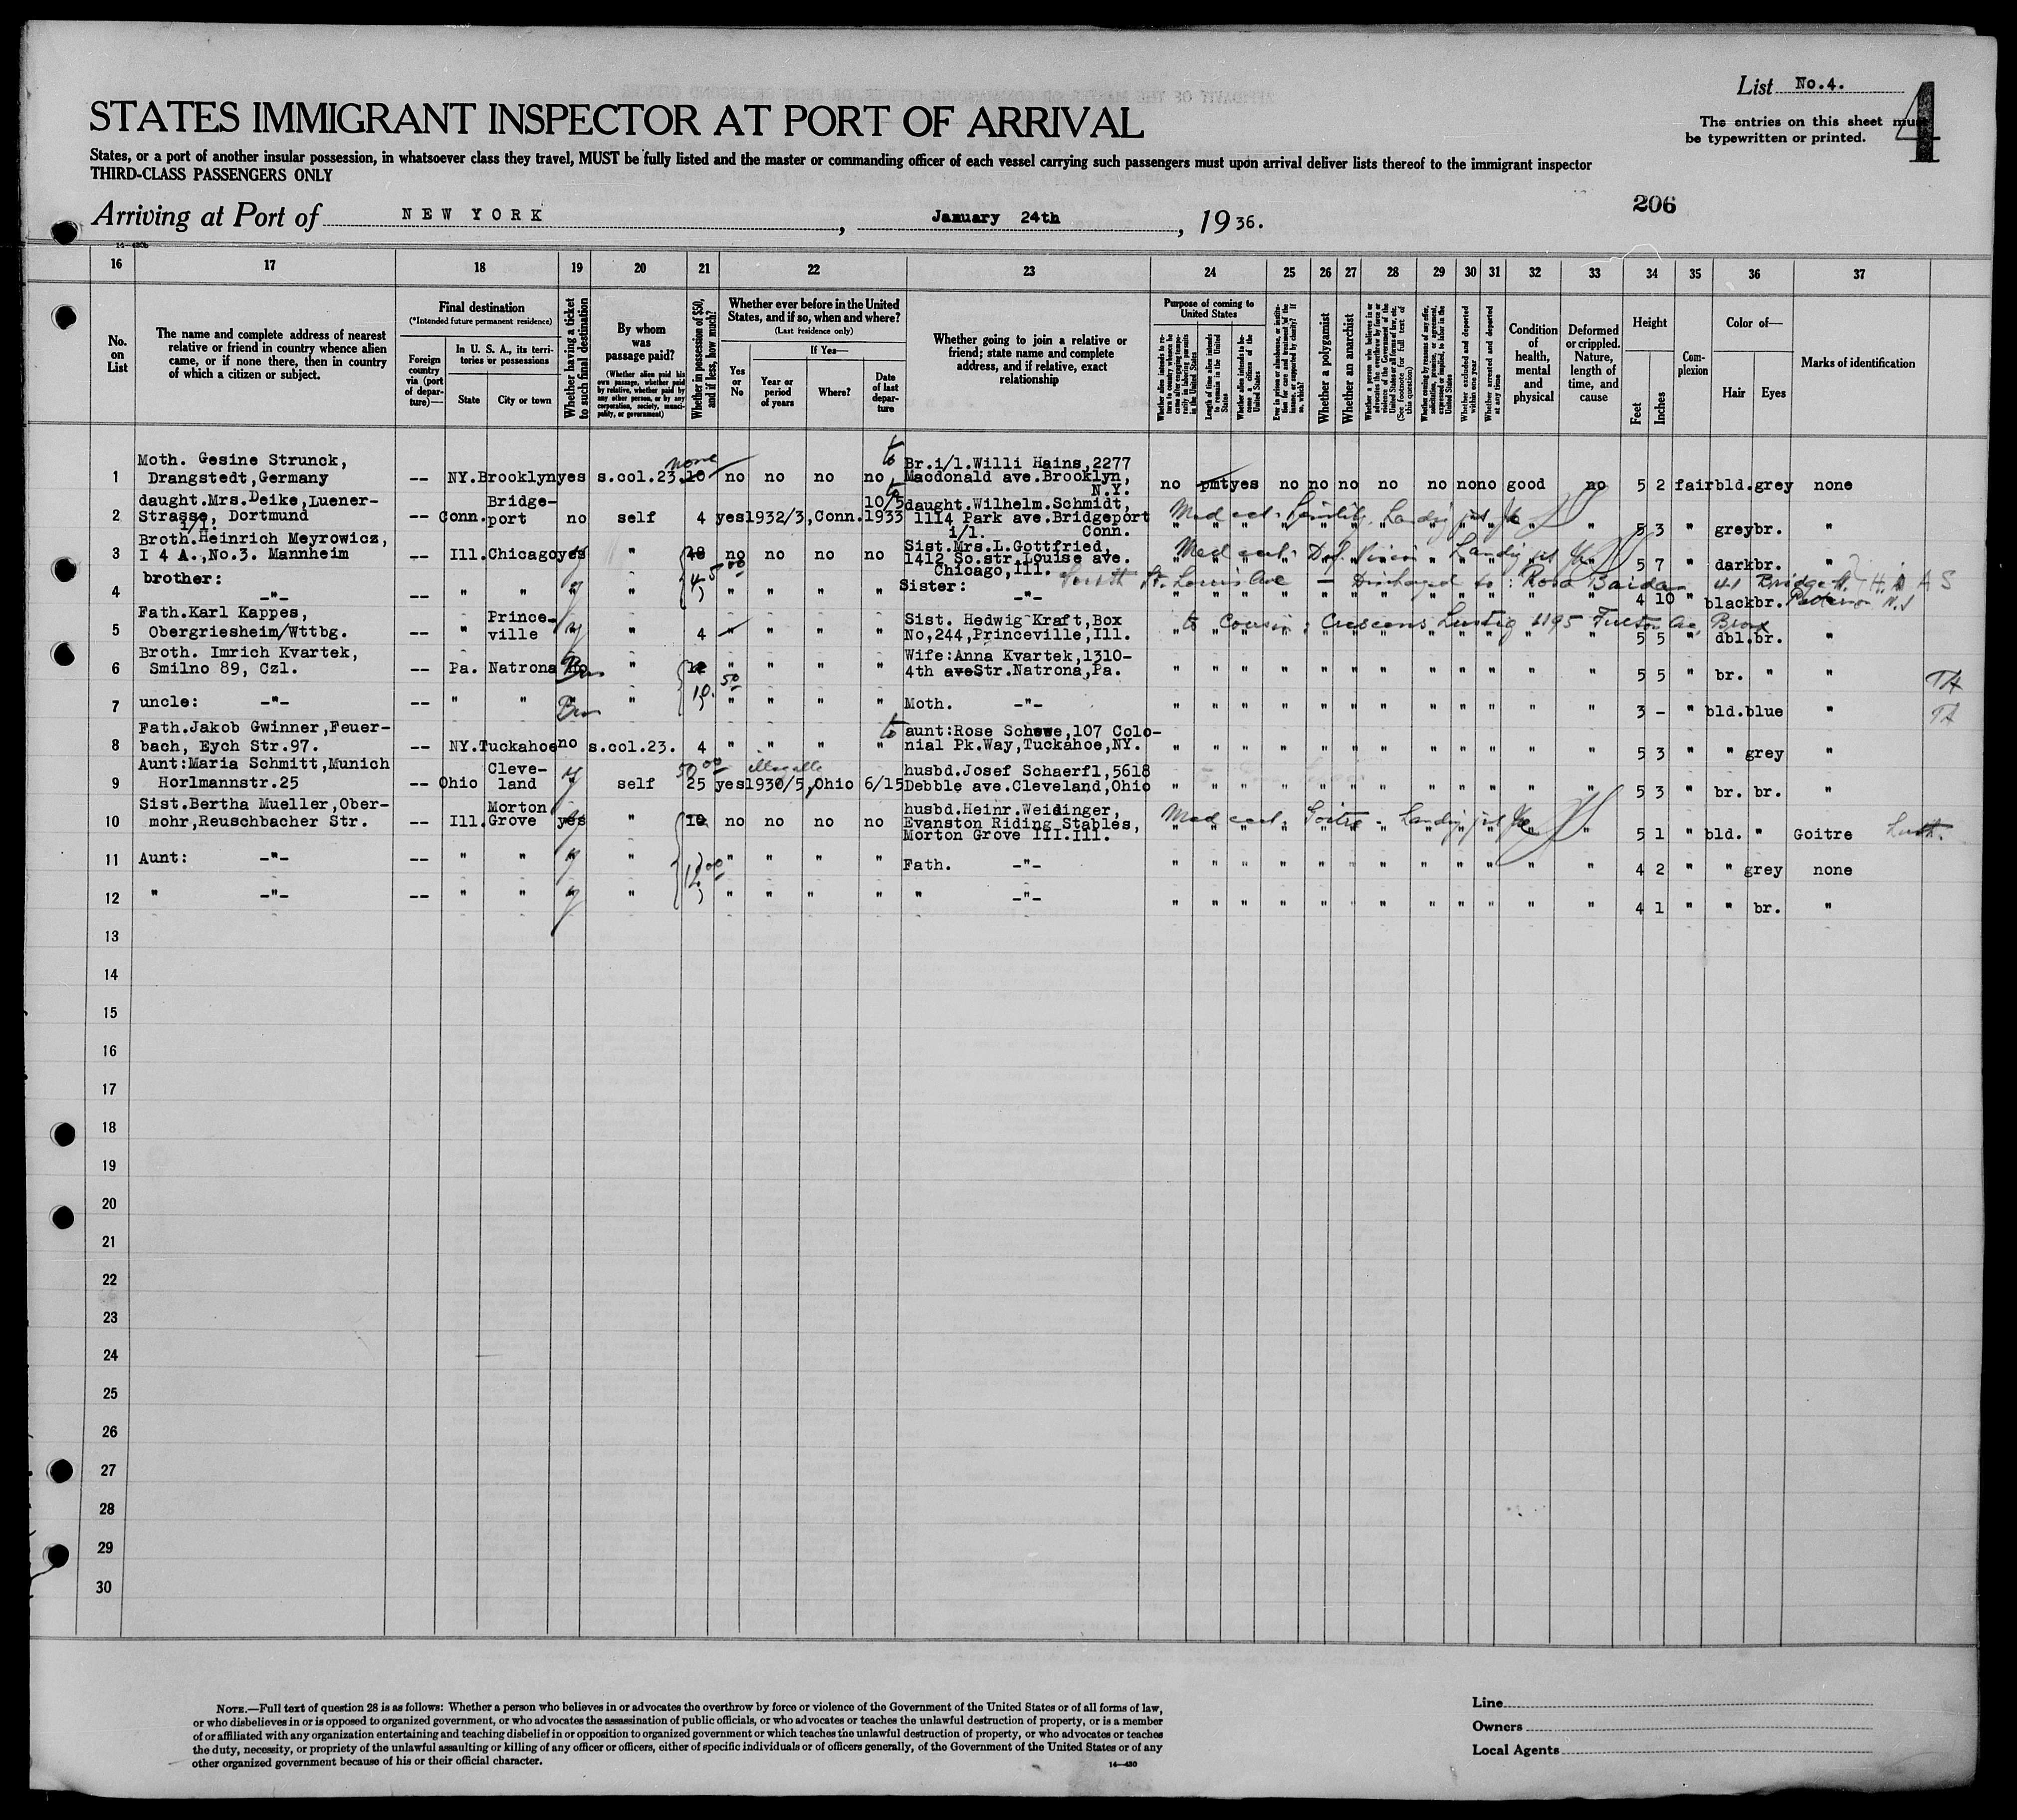 List No.4.
4
The entries on this sheet must
be typewritten or printed.
STATES IMMIGRANT INSPECTOR AT PORT OF ARRIVAL
States, or a port of another insular possession, in whatsoever class they travel, MUST be fully listed and the master or commanding officer of each vessel carrying such passengers must upon arrival deliver lists thereof to the immigrant inspector
THIRD-CLASS PASSENGERS ONLY
206
Arriving at Port of NEW YORK, January 24th, 1936.
16 17 18 19 20 21 22 23 24 25 26 27 28 29 30 31 32 33 34 35 36 37
No. on List
The name and complete address of nearest relative or friend in country whence alien came, or if none there, then in country of which a citizen or subject.
Final destination
(*Intended future permanent residence)
Foreign country via (port of departure)—
In U. S. A., its territories or possessions
State
City or town
Whether having a ticket to such final destination
By whom was passage paid?
(Whether alien paid his own passage, whether paid by relative, whether paid by any other person, or by any corporation, society, municipality, or government)
Whether in possession of $50, and if less, how much?
Whether ever before in the United States, and if so, when and where?
(Last residence only)
Yes or No
If Yes—
Year or period of years
Where?
Date of last departure
Whether going to join a relative or friend; state name and complete address, and if relative, exact relationship
Purpose of coming to United States
Length of time alien intends to remain in the United States
Whether alien intends to become a citizen of the United States
Whether a polygamist
Whether an anarchist
Whether excluded and deported within one year
Whether arrested and deported at any time
Condition of health, mental and physical
Deformed or crippled. Nature, length of time, and cause
Height
Feet
Inches
Complexion
Color of—
Hair
Eyes
Marks of identification
1 Moth. Gesine Strunck, Drangstedt,Germany -- NY. Brooklyn yes s.col.23. 10 none no no no no to Br.i/l.Willi Hains,2277 Macdonald ave.Brooklyn, N.Y. no pmt yes no no no no no no no good no 5 2 fair bld. grey none
2 daught.Mrs.Deike,Luener-Strasse, Dortmund -- Conn. Bridge-port no self 4 yes 1932/3, Conn. 10/5 1933 to daught.Wilhelm.Schmidt, 1114 Park ave.Bridgeport i/l. Conn. Med cert. Senility. Landing 5 3 " grey br. "
3 i/l. Broth.Heinrich Meyrowicz, I 4 A.,No.3. Mannheim -- Ill. Chicago yes " no no no no Sist.Mrs.L.Gottfried, 1412 So.str.Louise ave. Chicago,Ill. Med cert. Def. Vision Landing 5 7 " dark br. "
4 brother: -"- -- " " " 45 00 " " " " Sister: -"- South St. Louis Ave — Discharged to: Rosa 41 Bridge St. 4 10 " black br.
5 Fath.Karl Kappes, Obergriesheim/Wttbg. -- " Prince-ville y " 4 " " " " Sist. Hedwig Kraft, Box No,244,Princeville,Ill. to Cousin: Lustig 1195 Fulton Ave, Bronx 5 5 " dbl. br. "
6 Broth. Imrich Kvartek, Smilno 89, Czl. -- Pa. Natrona no " 12 " " " " Wife:Anna Kvartek,1310-4th ave Str.Natrona,Pa. 5 5 " br. " "
7 uncle: -"- -- " " " 10. 50 " " " " Moth. -"- 3 - " bld. blue "
8 Fath.Jakob Gwinner,Feuer-bach, Eych Str.97. -- NY. Tuckahoe no s.col.23. 4 " " " " to aunt:Rose Schewe,107 Colo-nial Pk.Way,Tuckahoe,NY. 5 3 " " grey "
9 Aunt:Maria Schmitt,Munich Horlmannstr.25 -- Ohio Cleve-land y self 25 50 00 yes illegally 1930/5, Ohio 6/15 husbd.Josef Schaerfl,5618 Debble ave.Cleveland,Ohio 5 3 " br. br. "
10 Sist.Bertha Mueller,Ober-mohr,Reuschbacher Str. -- Ill. Morton Grove yes " 10 no no no no husbd.Heinr.Weidinger, Evanston Riding Stables, Morton Grove III.Ill. Med cert. Goitre - Landing 5 1 " bld. " Goitre
11 Aunt: -"- -- " " y " " " " " Fath. -"- 4 2 " " grey none
12 " -"- -- " " y " " " " " " -"- 4 1 " " br. "
13
14
15
16
17
18
19
20
21
22
23
24
25
26
27
28
29
30
NOTE.—Full text of question 28 is as follows: Whether a person who believes in or advocates the overthrow by force or violence of the Government of the United States or of all forms of law,
or who disbelieves in or is opposed to organized government, or who advocates the assassination of public officials, or who advocates or teaches the unlawful destruction of property, or is a member
of or affiliated with any organization entertaining and teaching disbelief in or opposition to organized government or which teaches the unlawful destruction of property, or who advocates or teaches
the duty, necessity, or propriety of the unlawful assaulting or killing of any officer or officers, either of specific individuals or of officers generally, of the Government of the United States or of any
other organized government because of his or their official character.
14—430
Line
Owners
Local Agents